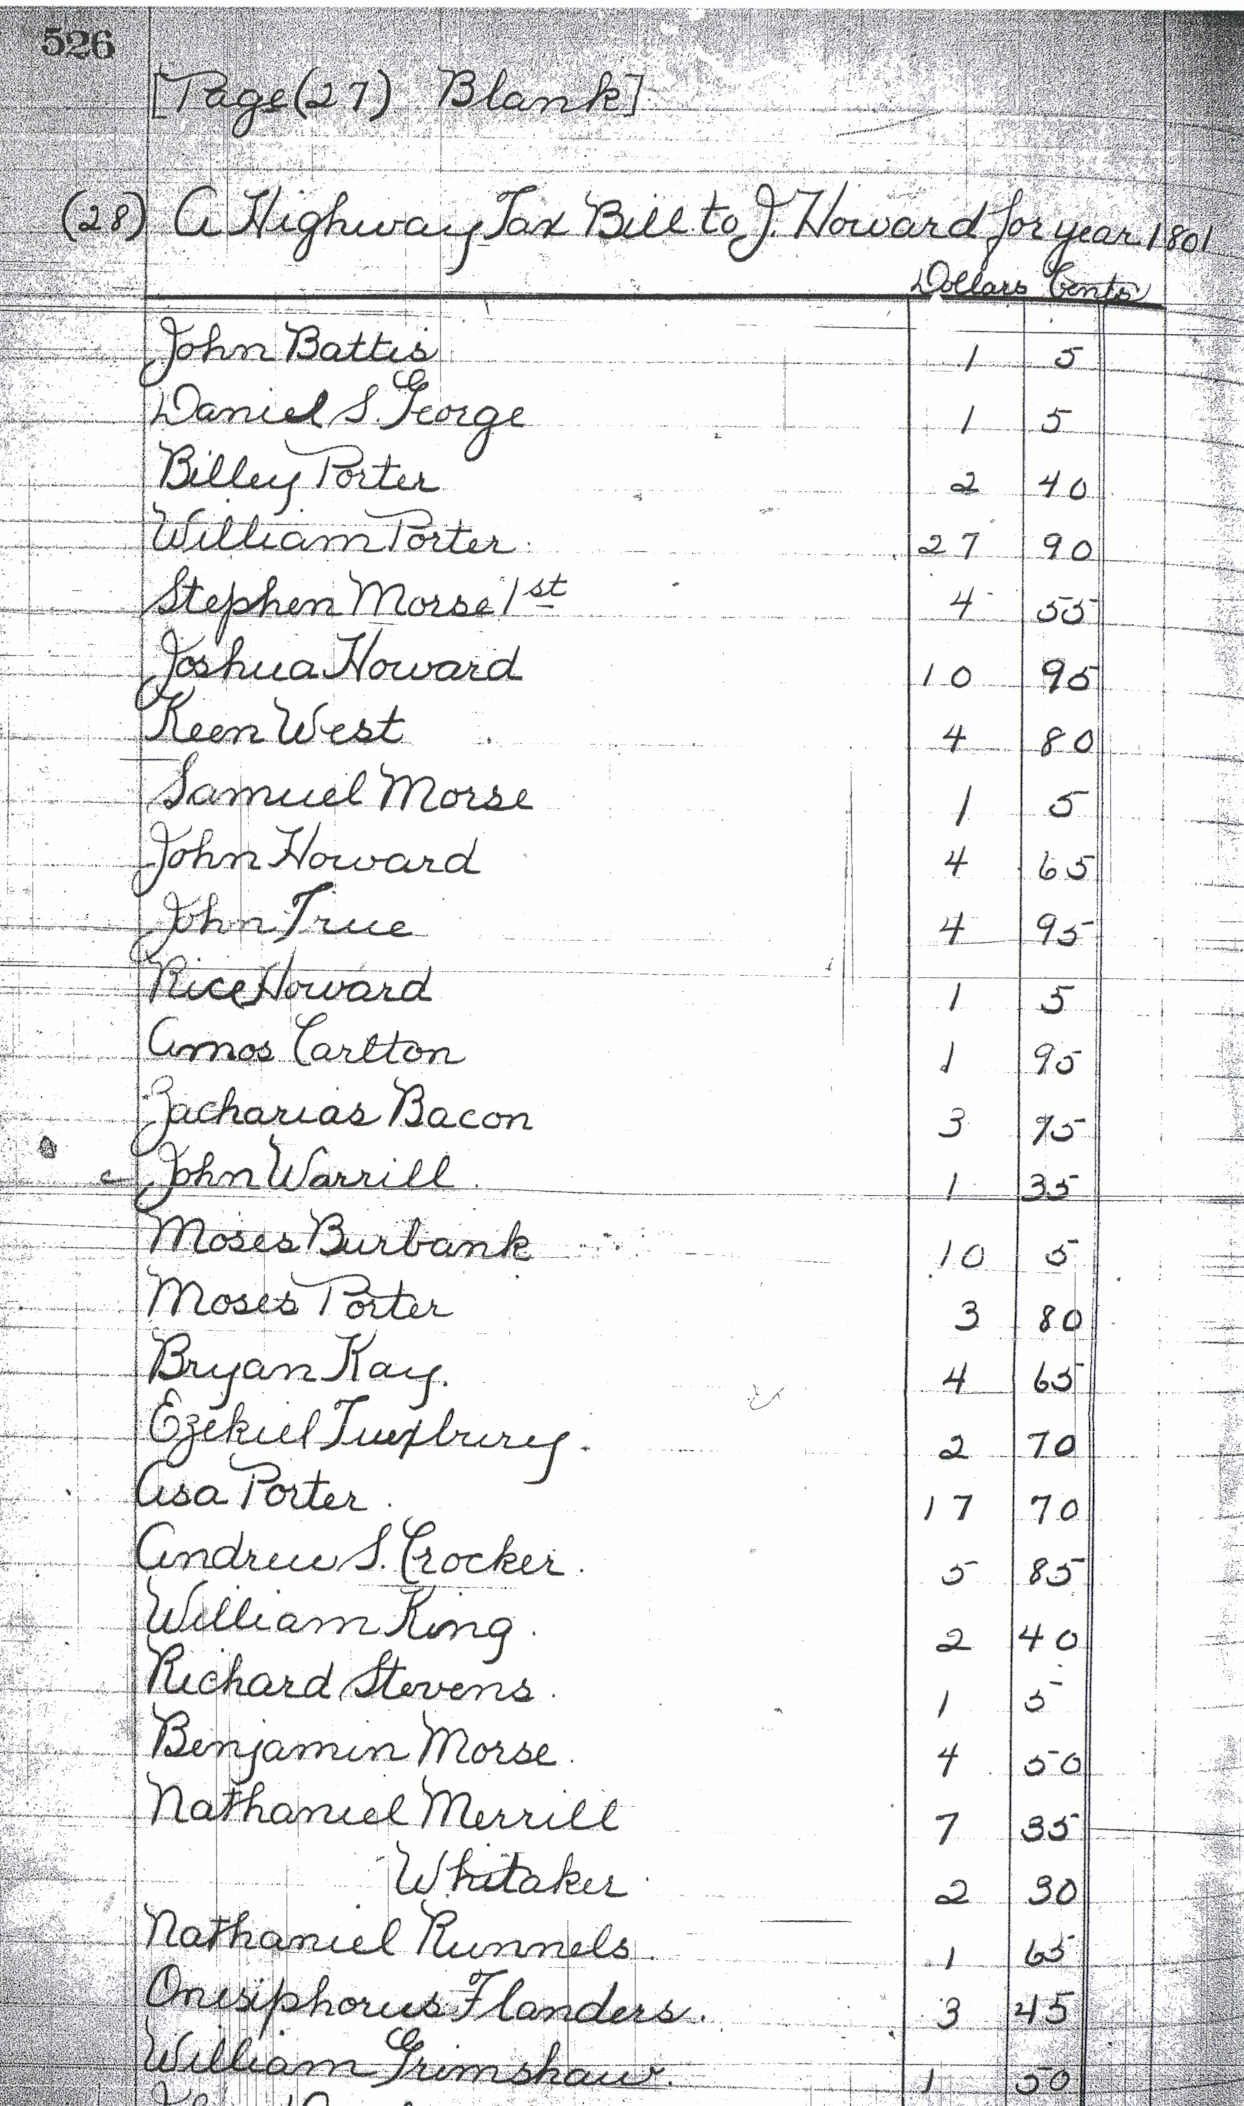 526
[Page (27) Blank]
(28) A Highway Tax Bill to J. Howard for year 1801
Dollars Cents
John Battis 1 5
Daniel S. George 1 5
Billey Porter 2 40
William Porter 27 90
Stephen Morse 1st 4 55
Joshua Howard 10 95
Keen West 4 80
Samuel Morse 1 5
John Howard 4 65
John True 4 95
Rice Howard 1 5
Amos Carlton 1 95
Zacharias Bacon 3 75
John Warrill 1 35
Moses Burbank 10 5
Moses Porter 3 80
Bryan Kay. 4 65
Ezekiel Tuexbury. 2 70
Asa Porter. 17 70
Andrew S. Crocker. 5 85
William King. 2 40
Richard Stevens. 1 5
Benjamin Morse. 4 50
Nathaniel Merrill 7 35
Whitaker 2 30
Nathaniel Runnels. 1 65
Onesiphorus Flanders. 3 45
William Grimshaw. 1 50